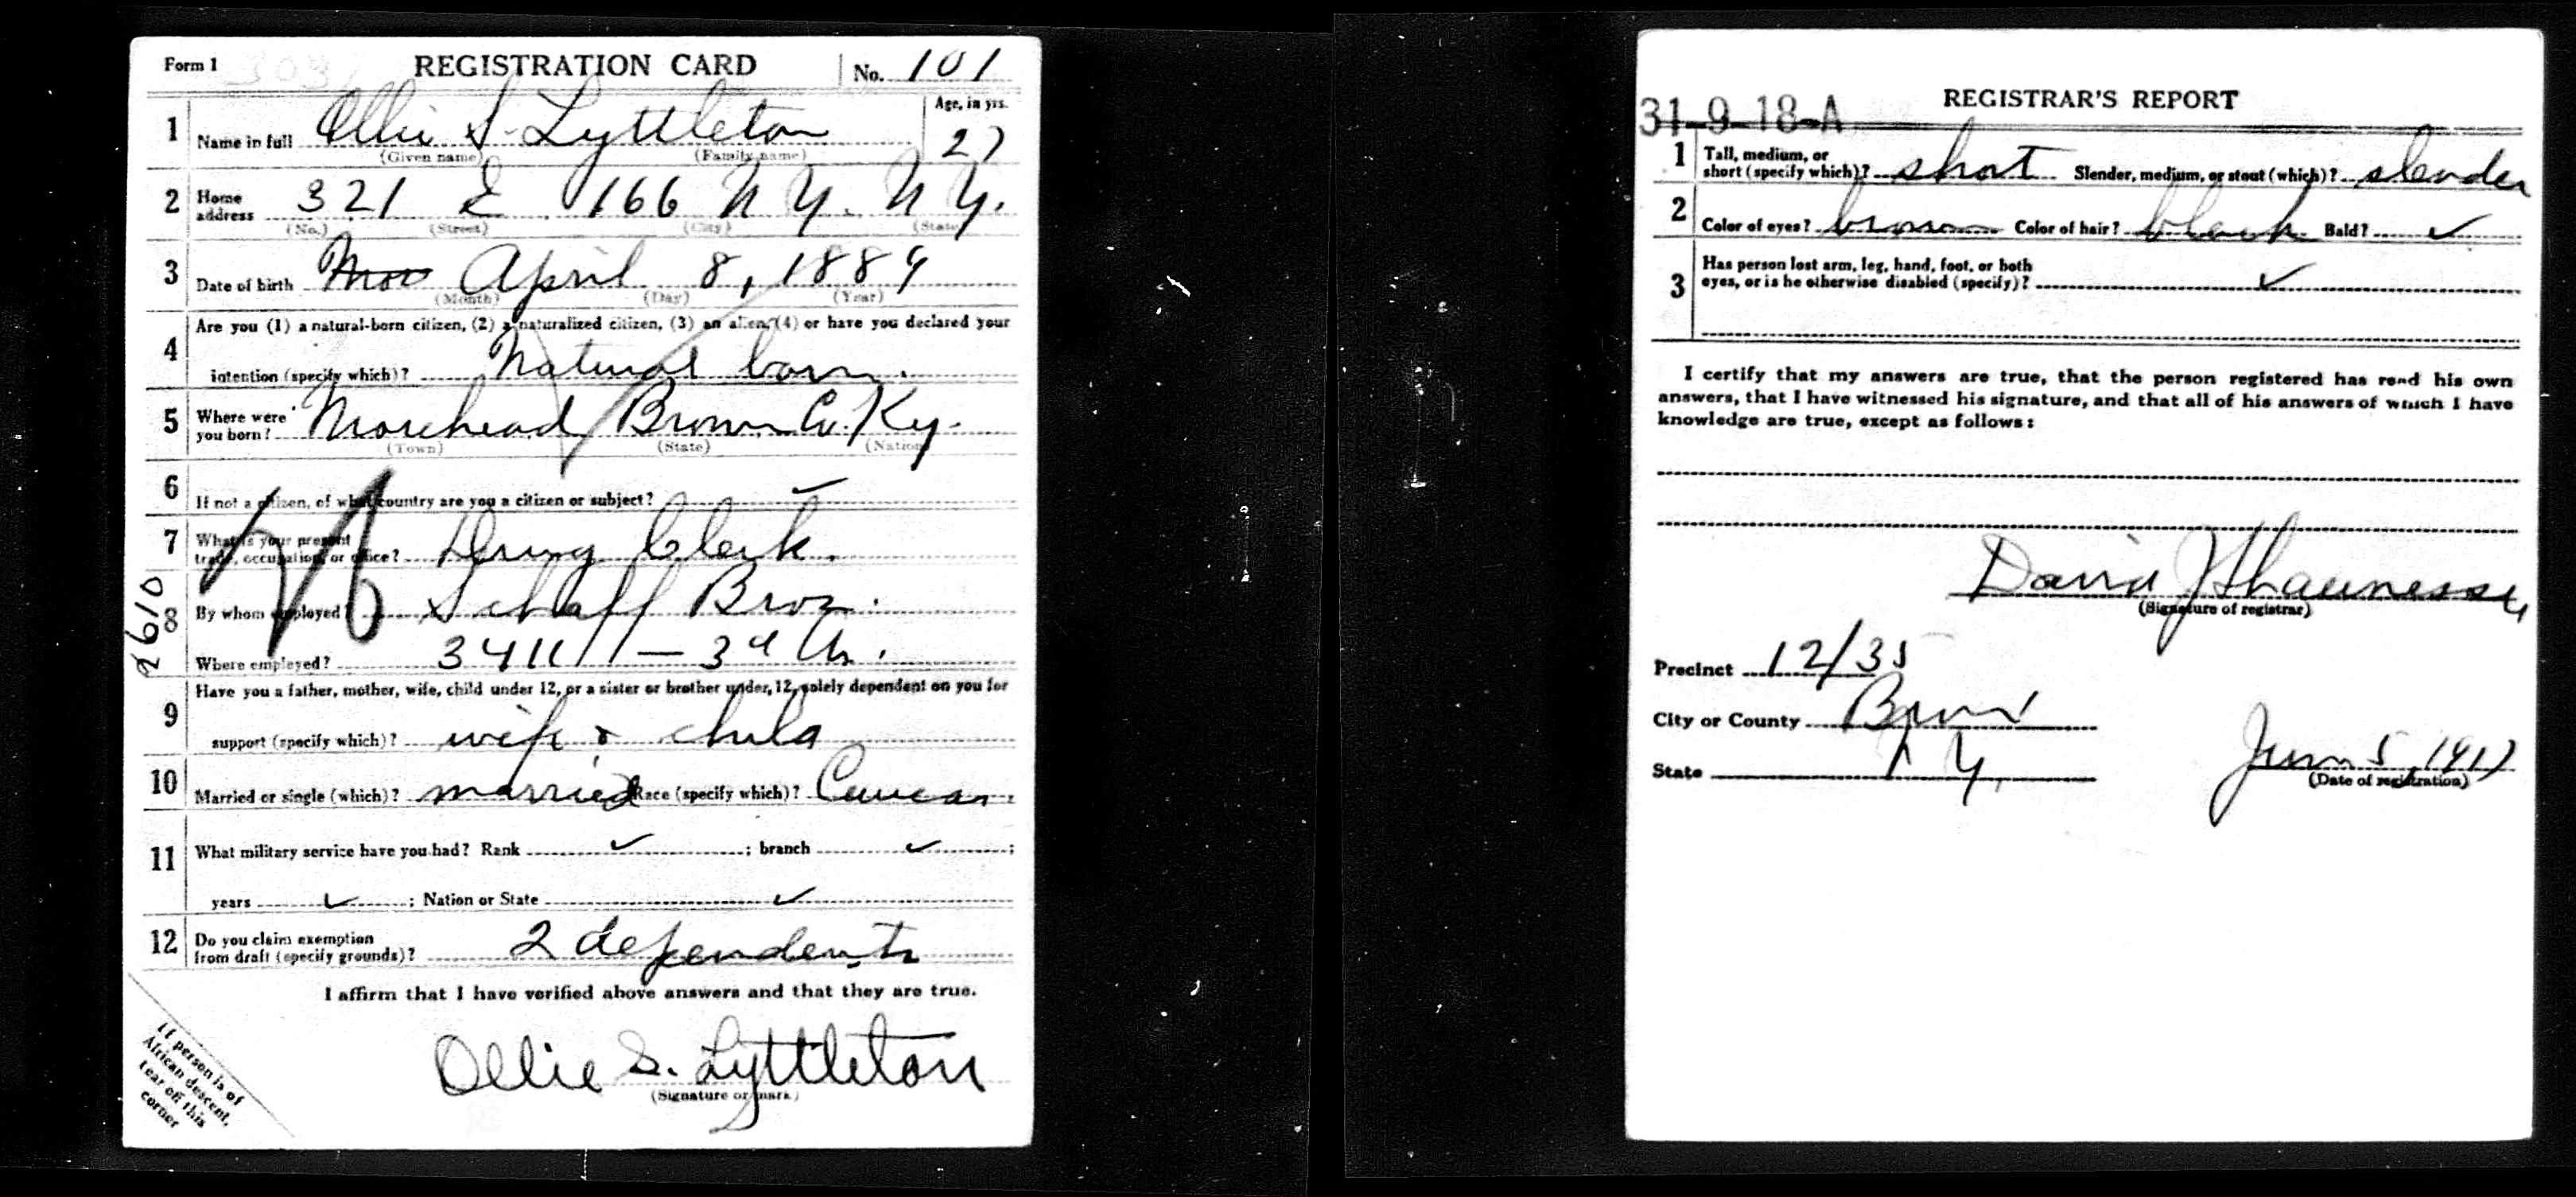 Form 1 REGISTRATION CARD No. 101
1 Name in full Ollie S. Lyttleton Age, in yrs. 27
(Given name) (Family name)
2 Home address 321 E 166 N Y. N Y.
(No.) (Street) (City) (State)
3 Date of birth April 8, 1889
(Month) (Day) (Year)
4 Are you (1) a natural-born citizen, (2) a naturalized citizen, (3) an alien, (4) or have you declared your
intention (specify which)? Natural born.
5 Where were you born? Morehead Brown Co. Ky.
(Town) (State) (Nation)
6 If not a citizen, of what country are you a citizen or subject? ✓
7 What is your present trade, occupation, or office? Drug Clerk.
2610
8 By whom employed? Schaff Bros.
Where employed? 3411
9 Have you a father, mother, wife, child under 12, or a sister or brother under, 12, solely dependent on you for
support (specify which)? wife & child
10 Married or single (which)? married Race (specify which)? Caucas.
11 What military service have you had? Rank ✓ ; branch ✓ ;
years ✓ ; Nation or State ✓
12 Do you claim exemption from draft (specify grounds)? 2 dependents
I affirm that I have verified above answers and that they are true.
Ollie S. Lyttleton
(Signature or mark)
If person is of
African descent,
tear off this
corner
31-9-18-A REGISTRAR'S REPORT
1 Tall, medium, or short (specify which)? short Slender, medium, or stout (which)? slender
2 Color of eyes? brown Color of hair? black Bald? ✓
3 Has person lost arm, leg, hand, foot, or both
eyes, or is he otherwise disabled (specify)? ✓
I certify that my answers are true, that the person registered has read his own
answers, that I have witnessed his signature, and that all of his answers of which I have
knowledge are true, except as follows:
David Shaunessy
(Signature of registrar)
Precinct 12/35
City or County Bronx
State N Y.
June 5, 1917
(Date of registration)